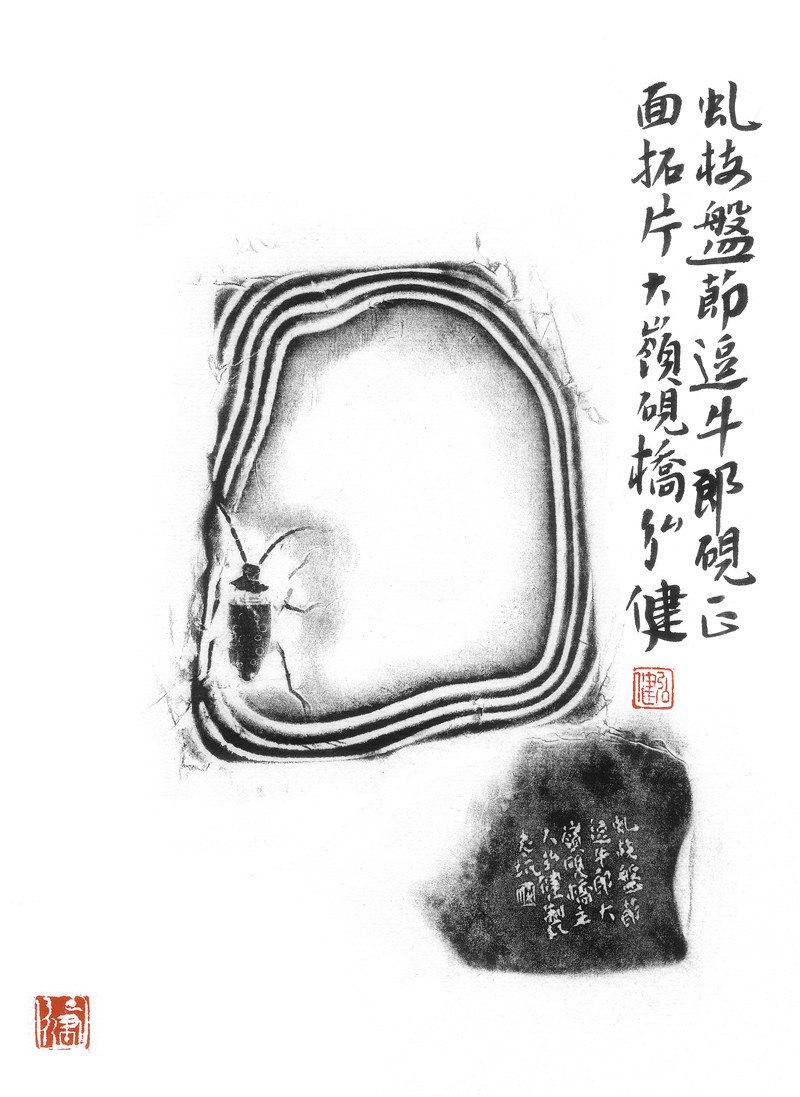 虬枝盤節逗牛郎硯正
面拓片大嶺硯橋弘健
弘健
虬枝盤節
逗牛郎大
嶺硯橋主
人弘健製
老坑